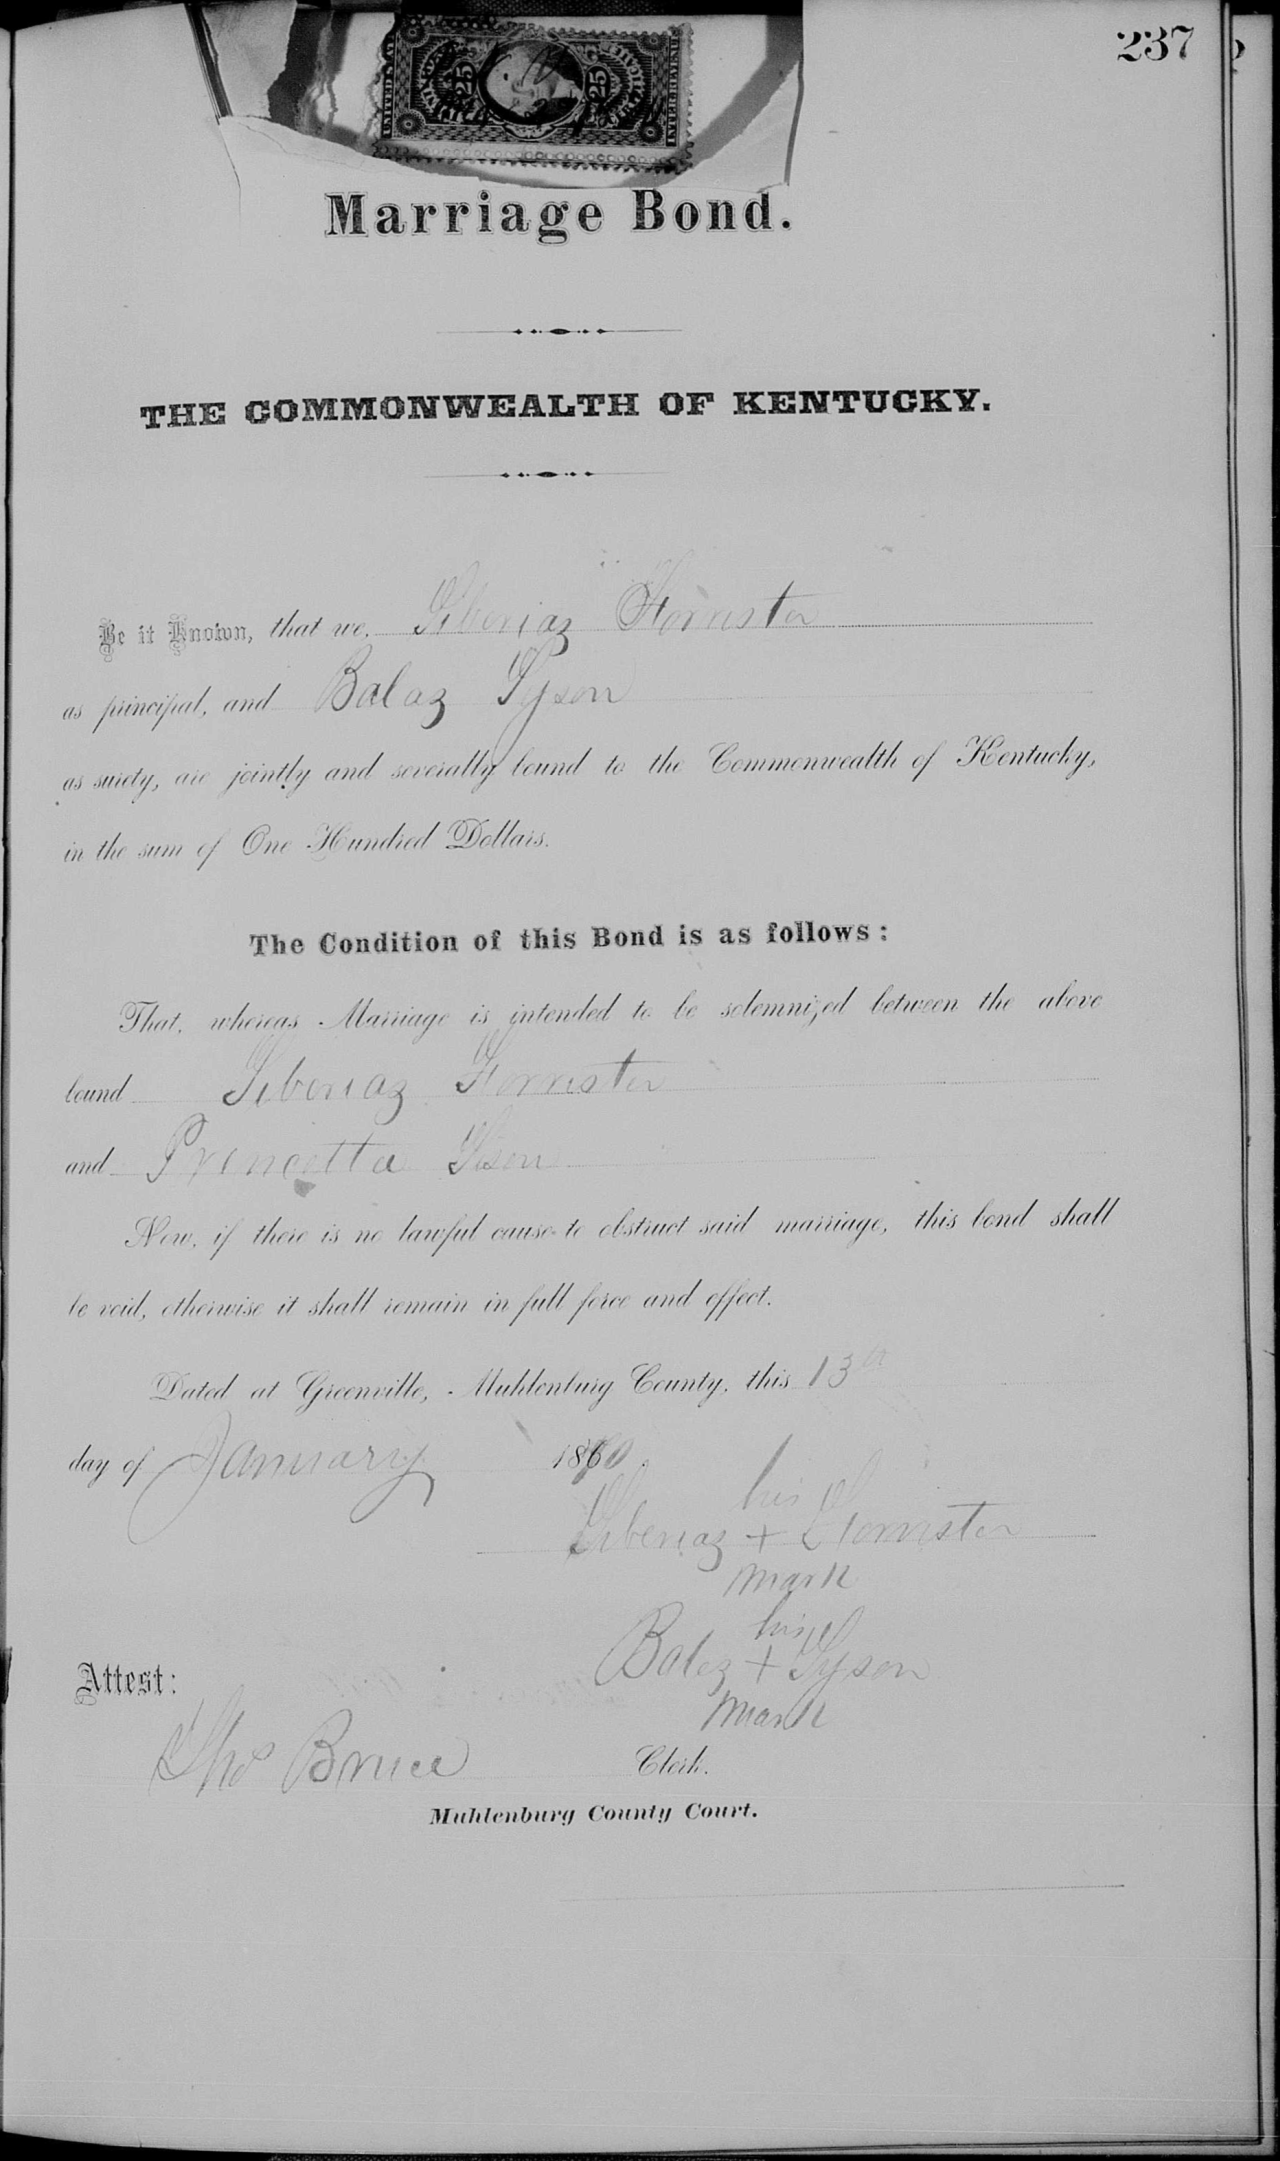 237
UNITED STATES
INTER. REVENUE
25
25
Marriage Bond.
THE COMMONWEALTH OF KENTUCKY.
Be it Known, that we, Siberiaz Forrister
as principal, and Balaz Tyson
as surety, are jointly and severally bound to the Commonwealth of Kentucky,
in the sum of One Hundred Dollars.
The Condition of this Bond is as follows:
That, whereas Marriage is intended to be solemnized between the above
bound Siberiaz Forrister
and Princetta Tison
Now, if there is no lawful cause to obstruct said marriage, this bond shall
be void, otherwise it shall remain in full force and effect.
Dated at Greenville, Muhlenburg County, this 13th
day of January 1870.
his
Siberiaz + Forrister
mark
his
Balaz + Tyson
mark
Attest:
Thos Bruce Clerk.
Muhlenburg County Court.